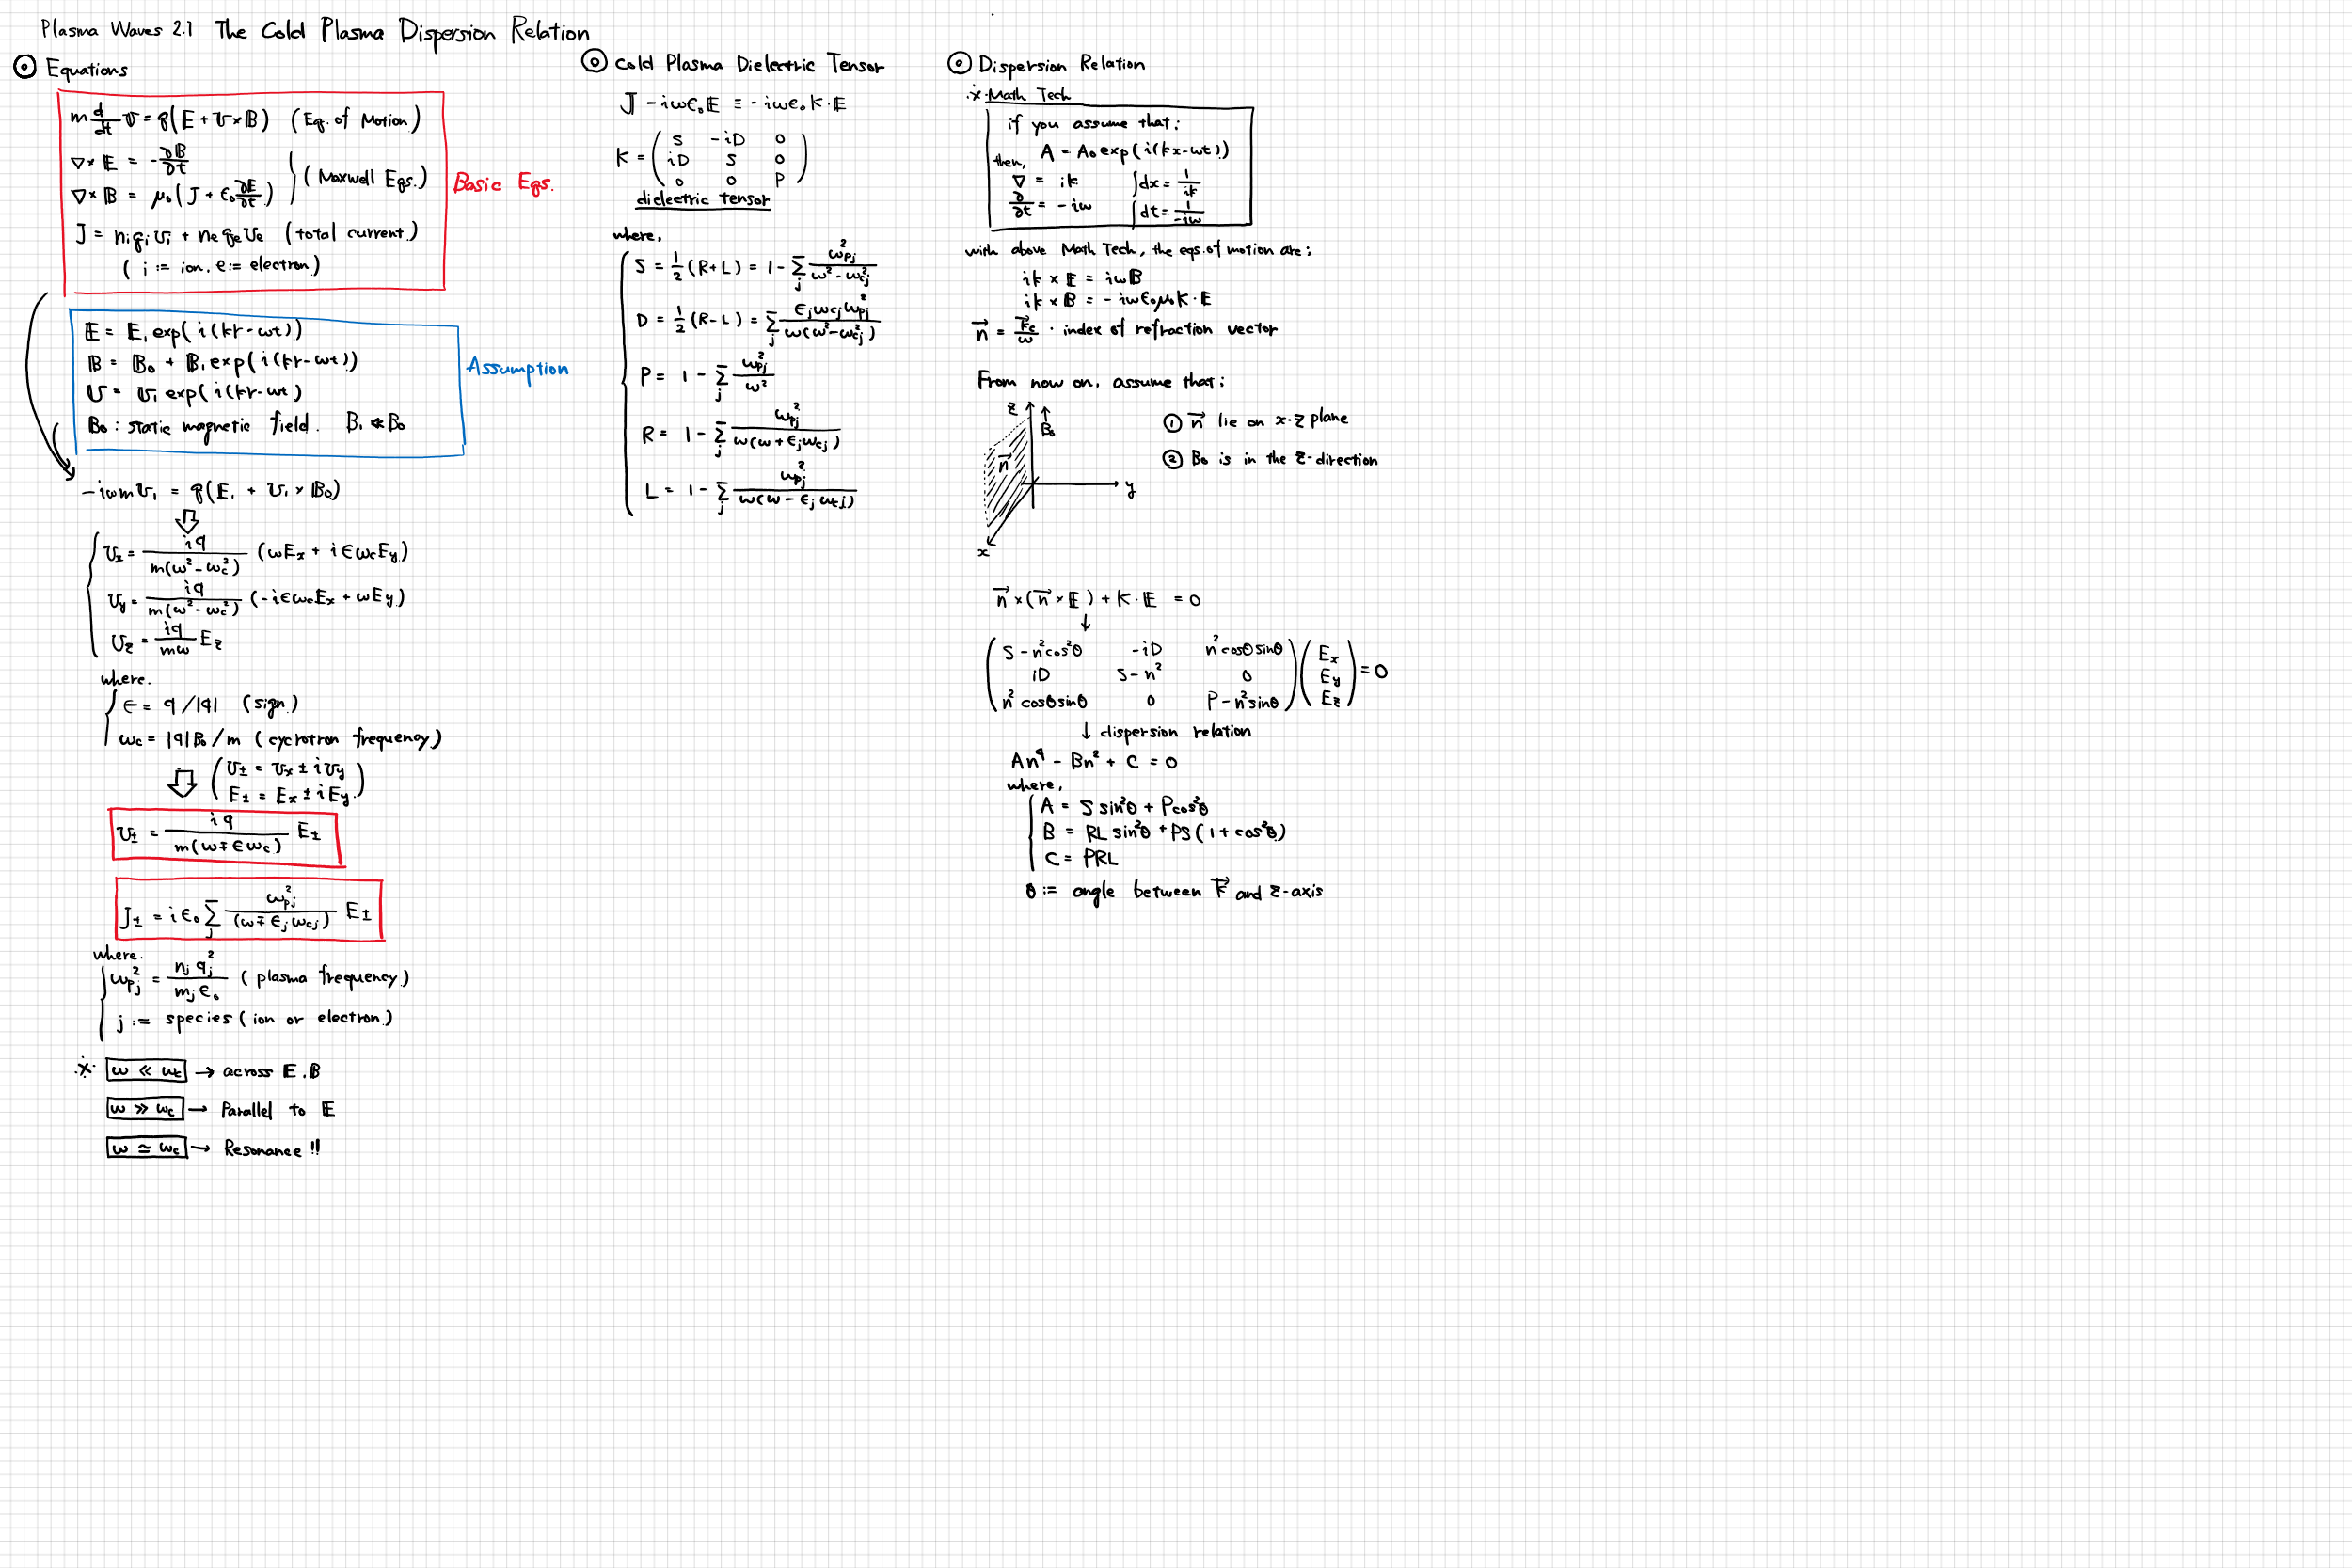 Plasma Waves 2.1 The Cold Plasma Dispersion Relation
⊙ Equations
m d/dt v = q(E + v×B) (Eq. of Motion)
∇×E = -∂B/∂t
∇×B = μ₀(J + ε₀ ∂E/∂t) } (Maxwell Eqs.)
J = nᵢqᵢvᵢ + nₑqₑvₑ (total current)
(i := ion, e := electron)
Basic Eqs.
E = E₁ exp(i(kr-ωt))
B = B₀ + B₁ exp(i(kr-ωt))
v = v₁ exp(i(kr-ωt)
B₀ : static magnetic field. B₁ ≪ B₀
Assumption
-iωm v₁ = q(E₁ + v₁ × B₀)
⇩
vₓ = iq / m(ω²-ω_c²) (ωEₓ + iεω_cE_y)
v_y = iq / m(ω²-ω_c²) (-iεω_cEₓ + ωE_y)
v_z = iq / mω E_z
where.
ε = q/|q| (sign)
ω_c = |q|B₀/m (cycrotron frequency)
⇩ (v± = vₓ ± iv_y
E± = Eₓ ± iE_y)
v± = iq / m(ω∓εω_c) E±
J± = iε₀ Σ_j ω_pj² / (ω∓ε_jω_cj) E±
where.
ω_pj² = n_j q_j² / m_j ε₀ (plasma frequency)
j := species (ion or electron)
※ ω ≪ ω_c → across E.B
ω ≫ ω_c → Parallel to E
ω ≃ ω_c → Resonance !!
⊙ Cold Plasma Dielectric Tensor
J - iωε₀E ≡ -iωε₀K·E
K = ( S -iD 0
iD S 0
0 0 P )
dielectric tensor
where,
S = 1/2 (R+L) = 1 - Σ_j ω_pj² / ω²-ω_cj²
D = 1/2 (R-L) = Σ_j ε_jω_cjω_pj² / ω(ω²-ω_cj²)
P = 1 - Σ_j ω_pj² / ω²
R = 1 - Σ_j ω_pj² / ω(ω+ε_jω_cj)
L = 1 - Σ_j ω_pj² / ω(ω-ε_jω_cj)
⊙ Dispersion Relation
※ Math Tech
if you assume that:
A = A₀ exp(i(kx-ωt))
then,
∇ = ik ∫dx = 1/ik
∂/∂t = -iω ∫dt = 1/-iω
with above Math Tech, the eqs. of motion are:
ik × E = iωB
ik × B = -iωε₀μ₀K·E
n⃗ = k⃗c/ω · index of refraction vector
From now on, assume that:
z B₀ n⃗ y x
① n⃗ lie on x-z plane
② B₀ is in the z-direction
n⃗×(n⃗×E) + K·E = 0
↓
( S-n²cos²θ -iD n²cosθsinθ ) ( Eₓ )
( iD S-n² 0 ) ( E_y ) = 0
( n²cosθsinθ 0 P-n²sinθ ) ( E_z )
↓ dispersion relation
An⁴ - Bn² + C = 0
where,
A = S sin²θ + Pcos²θ
B = RL sin²θ + PS(1+cos²θ)
C = PRL
θ := angle between k⃗ and z-axis